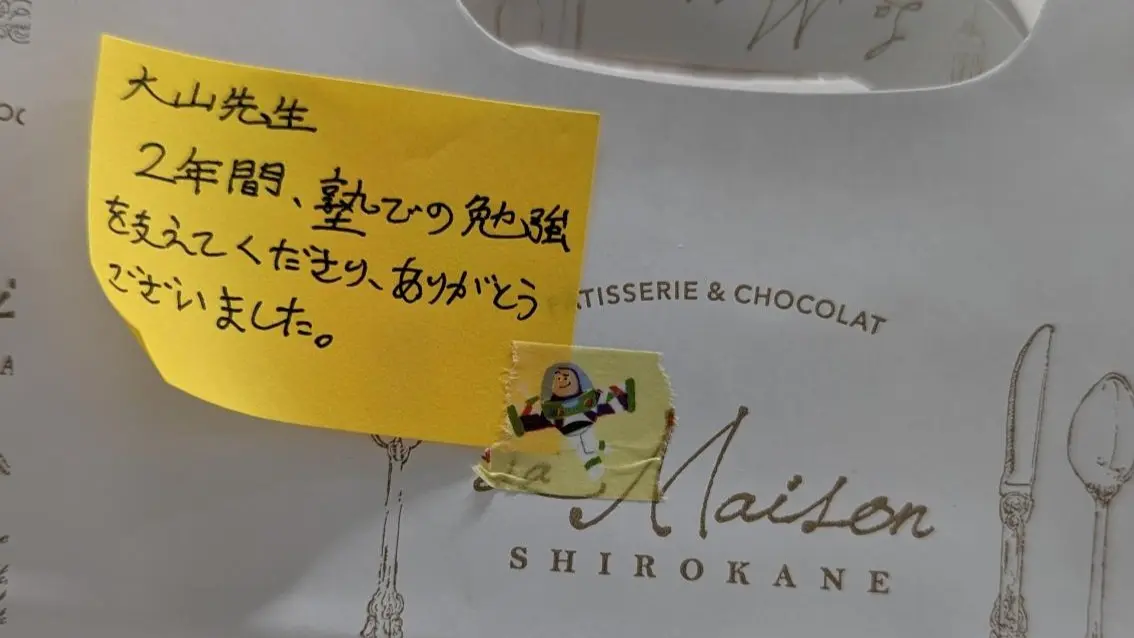 大山先生
2年間、塾での勉強
を支えてくださり、ありがとう
ございました。
PATISSERIE & CHOCOLAT
La Maison
SHIROKANE